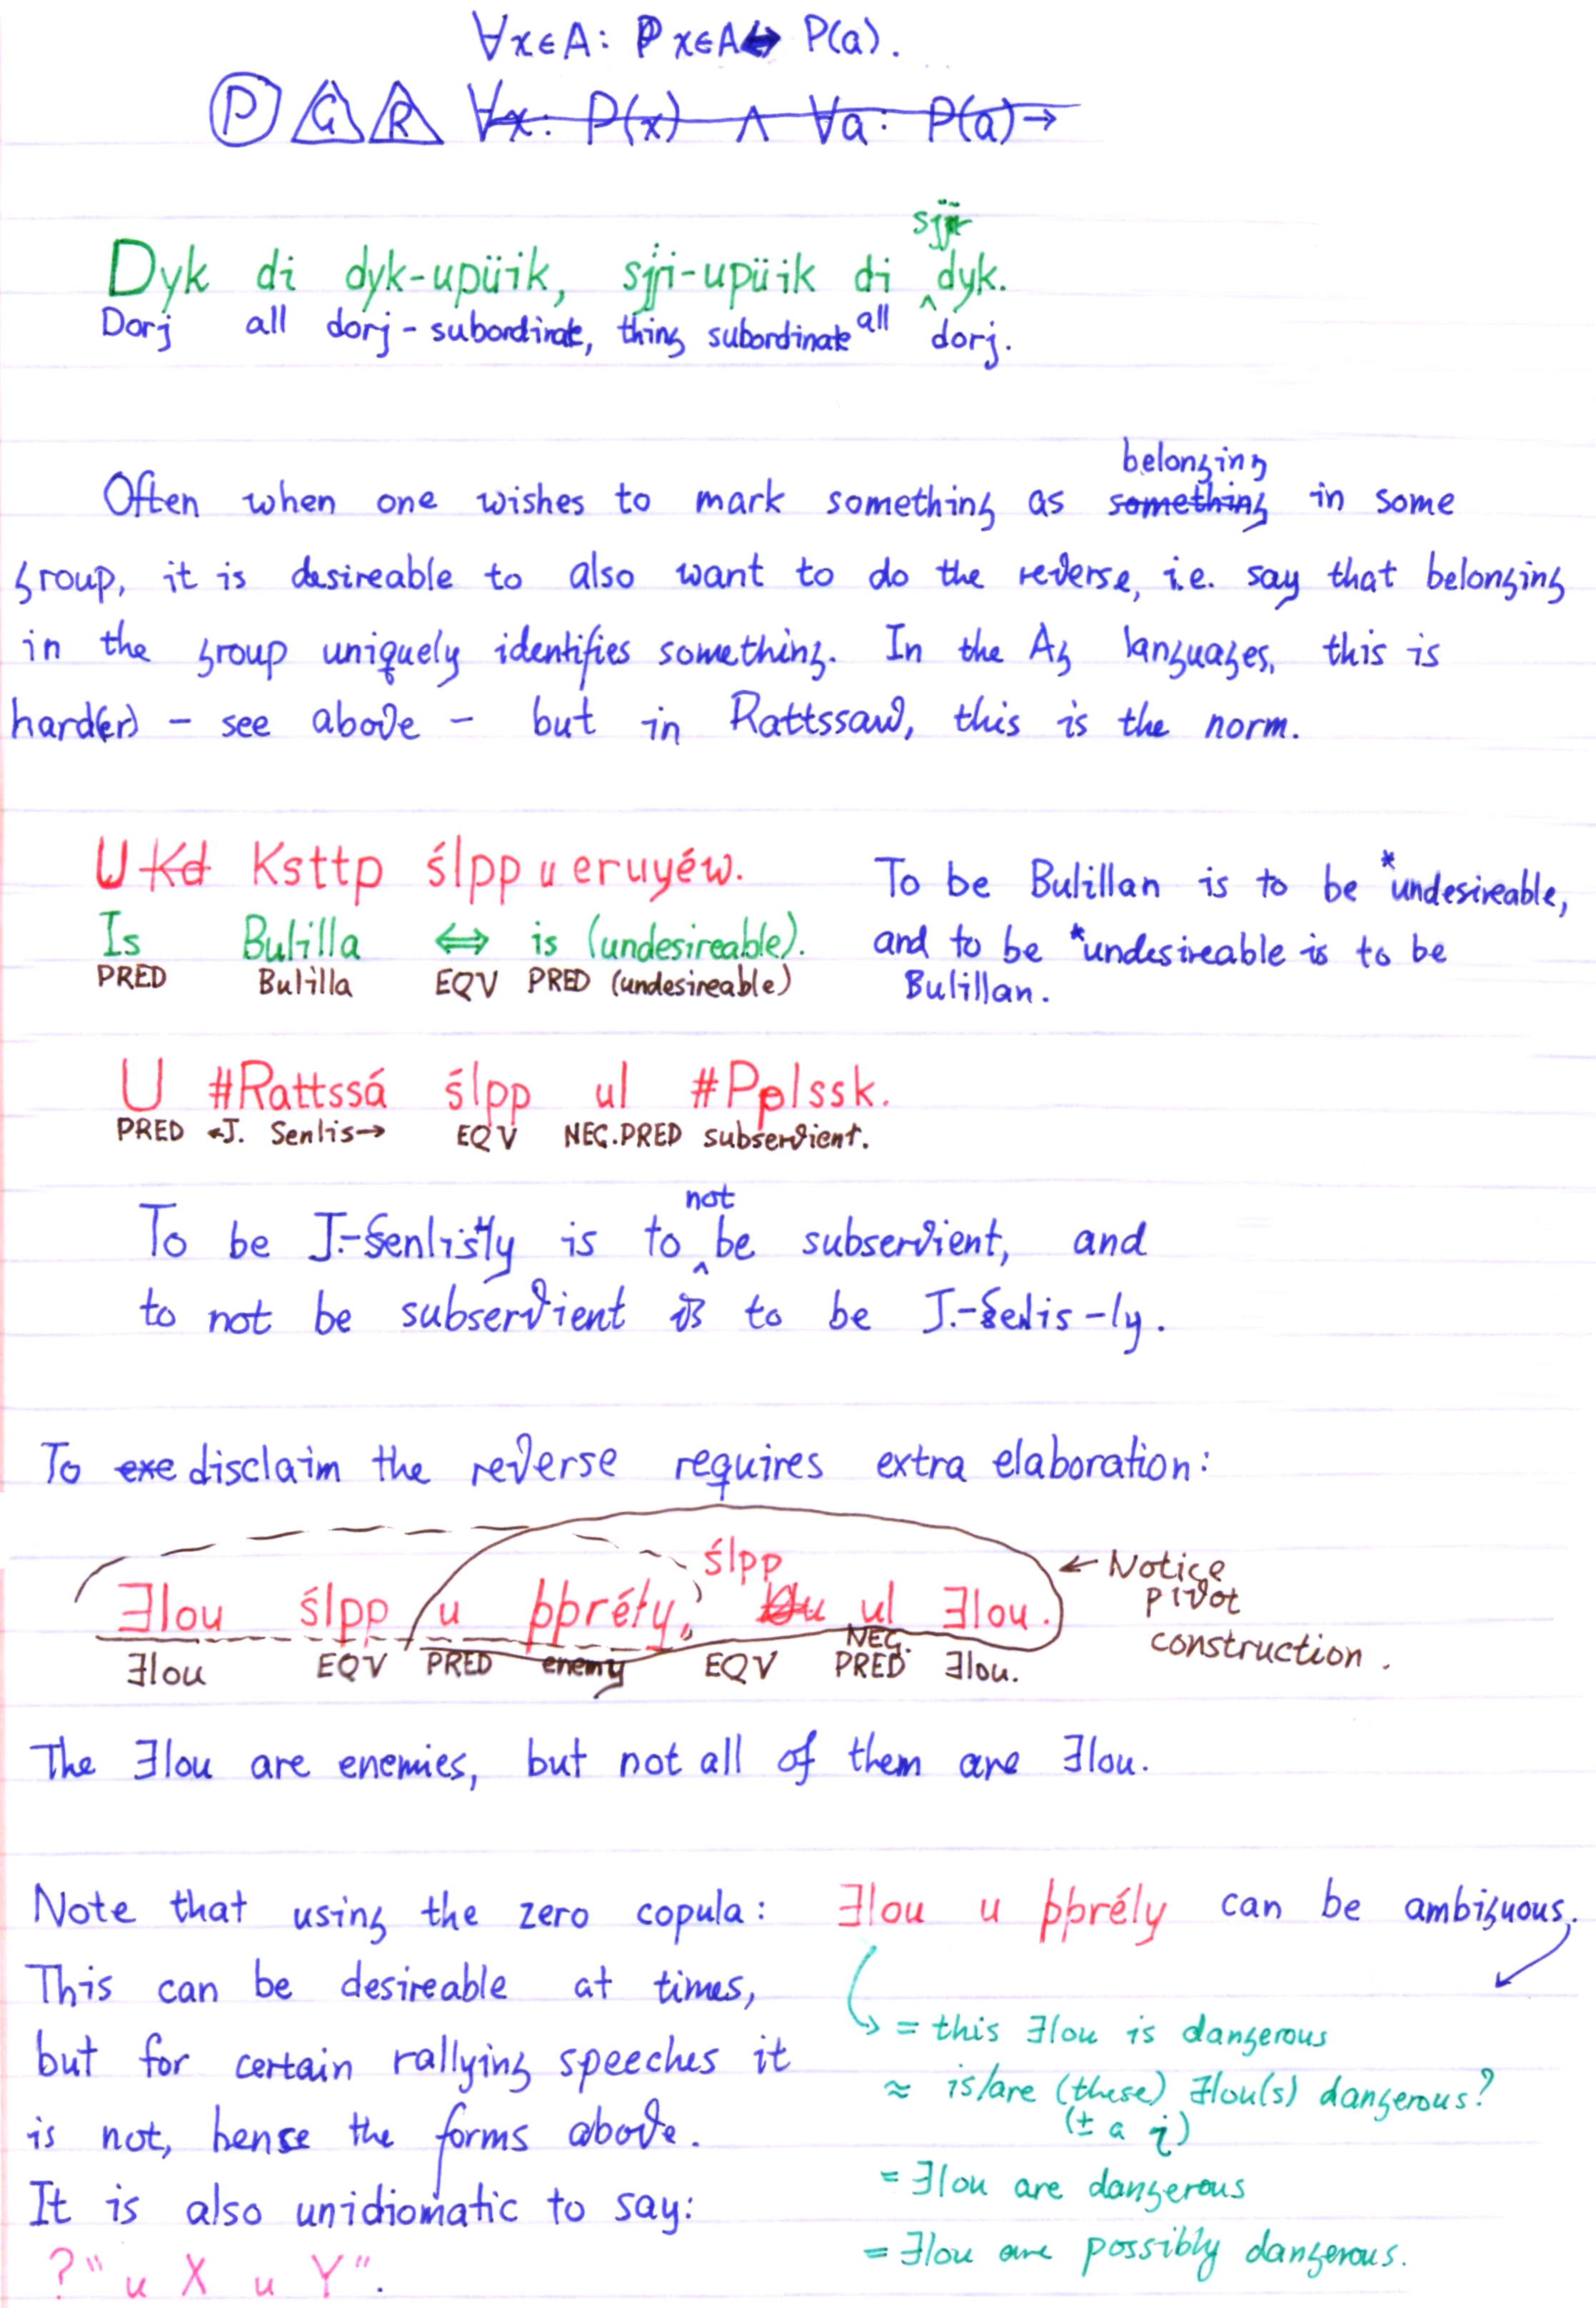 ∀x∈A: P x∈A ↔ P(a).
P G R ∀x: P(x) ∧ ∀a: P(a)→
sjï
Dyk di dyk-upüik, sjï-upüik di ^ dyk.
Dorj all dorj-subordinate, thing subordinate all dorj.
belonging
Often when one wishes to mark something as something in some
group, it is desireable to also want to do the reverse, i.e. say that belonging
in the group uniquely identifies something. In the Ag languages, this is
hard(er) – see above – but in Rattssaw, this is the norm.
U Kd Ksttp ślpp u eruyéw.
Is Bulilla ⟺ is (undesireable).
PRED Bulilla EQV PRED (undesireable)
To be Bulillan is to be *undesireable,
and to be *undesireable is to be
Bulillan.
U #Rattssá ślpp ul #Pplssk.
PRED ←J. Senlis→ EQV NEG.PRED subservient.
not
To be J.-Senlis-ly is to ^ be subservient, and
to not be subservient is to be J.-Senlis-ly.
To exe disclaim the reverse requires extra elaboration:
ślpp
Ǝlou ślpp u þþréły, ul Ǝlou.
Ǝlou EQV PRED enemy EQV NEG. PRED Ǝlou.
← Notice
pivot
construction.
The Ǝlou are enemies, but not all of them are Ǝlou.
Note that using the zero copula: Ǝlou u þþrély can be ambiguous.
This can be desireable at times,
but for certain rallying speeches it
is not, hense the forms above.
It is also unidiomatic to say:
?"u X u Y".
= this Ǝlou is dangerous
≈ is/are (these) Ǝlou(s) dangerous?
(± a i)
= Ǝlou are dangerous
= Ǝlou are possibly dangerous.